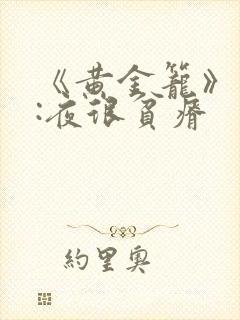 《黄金籠》
:夜很貧瘠
約里奧